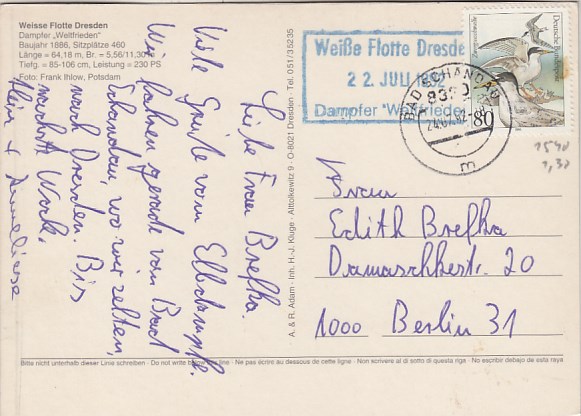 Weisse Flotte Dresden
Dampfer „Weltfrieden“
Baujahr 1886, Sitzplätze 460
Länge = 64,18 m, Br. = 5,56/11,30 m
Tiefg. = 85-106 cm, Leistung = 230 PS
Foto: Frank Ihlow, Potsdam
Liebe Frau Brefka.
Viele Grüße vom Elbdampfer.
Wir kamen gerade vom Bad
Schandau, wo wir zelten,
nach Dresden. Bis
nächste Woche.
+ Anneliese
A. & R. Adam · Inh. H.-J. Kluge · AltTolkewitz 9 · O-8021 Dresden · Tel. 051/35235
Weiße Flotte Dresde
22. JULI
Dampfer "Weltfrieden
BAD SCHANDAU
8320
24.07.92
m
Deutsche Bundespost
80
1540
1,30
Frau
Edith Brefka
Damaschkestr. 20
1000 Berlin 31
Bitte nicht unterhalb dieser Linie schreiben · Do not write below the line · Ne pas écrire au dessous de cette ligne · Non scrivere al di sotto di questa riga · No escribir debajo de esta raya